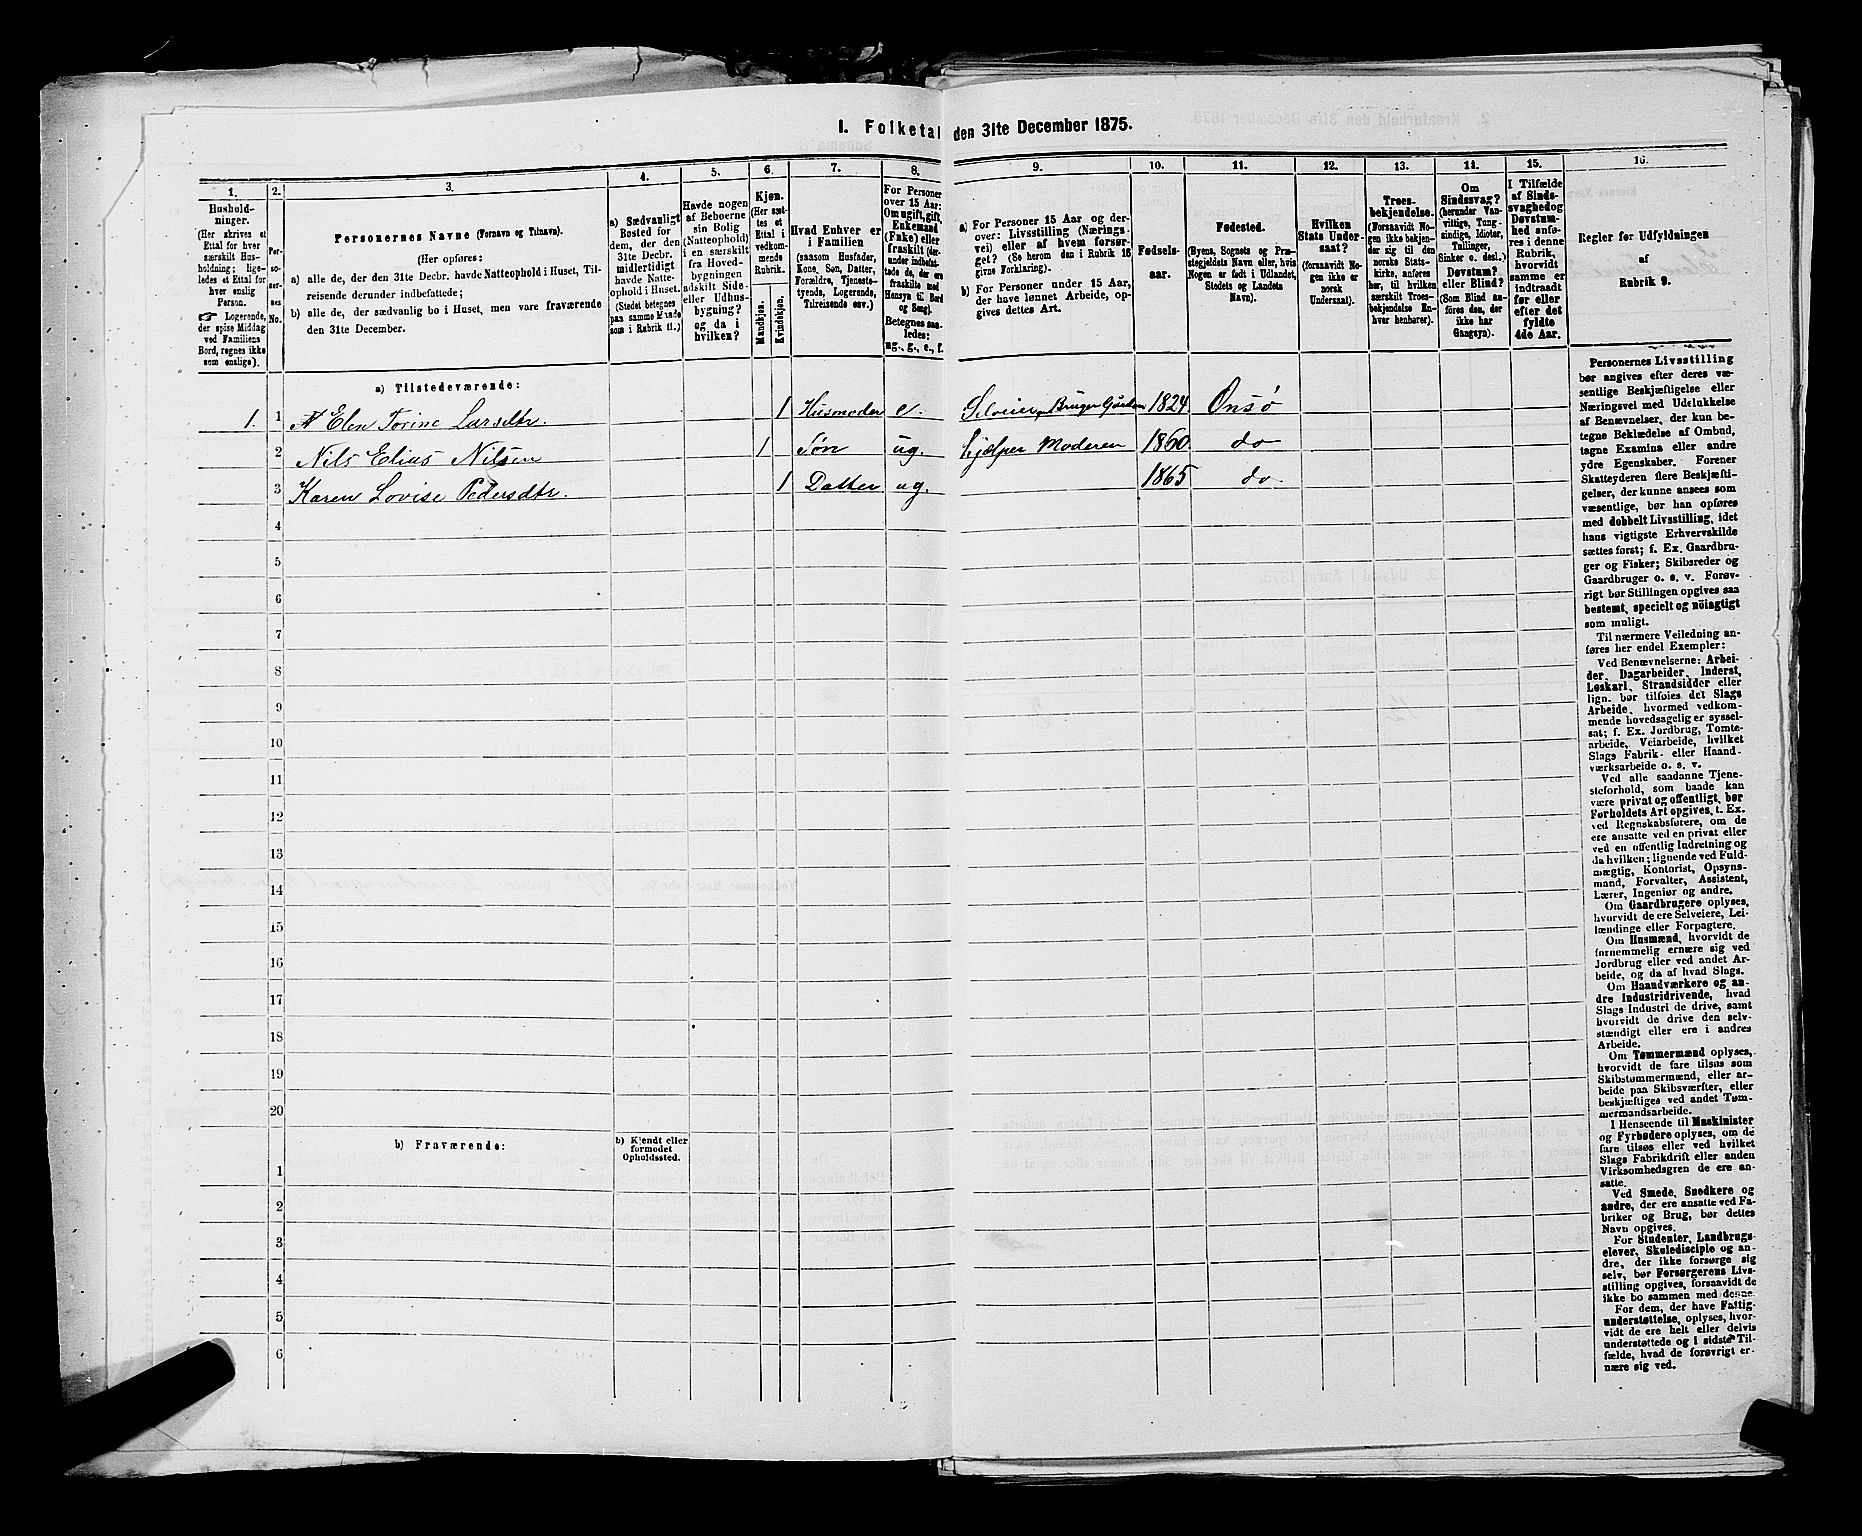 I. Folketal den 31te December 1875.
1.
2.
3.
4.
5.
6.
7.
8.
9.
10.
11.
12.
13.
14.
15.
16.
Hushold-
ninger.
(Her skrives et
Ettal for hver
særskilt Hus-
holdning; lige-
ledes et Ettal for
hver enslig
Person.
☞ Logerende,
der spise Middag
ved Familiens
Bord, regnes ikke
som enslige).
Per-
so-
ner-
nes
No.
Personernes Navne (Fornavn og Tilnavn).
(Her opføres:
a) alle de, der den 31te Decbr. havde Natteophold i Huset, Til-
reisende derunder indbefattede;
b) alle de, der sædvanlig bo i Huset, men vare fraværende
den 31te December.
a) Sædvanligt
Bosted for
dem, der den
31te Decbr.
midlertidigt
havde Natte-
ophold i Huset.
(Stedet betegnes
paa samme Maade
som i Rubrik 11.)
Havde nogen
af Beboerne
sin Bolig
(Natteophold)
i en særskilt
fra Hoved-
bygningen
adskilt Side-
eller Udhus-
bygning?
og da i
hvilken?
Kjøn.
(Her sæt-
tes et
Ettal i
vedkom-
mende
Rubrik.
Mandkjøn.
Kvindekjøn.
Hvad Enhver er
i Familien
(saasom Husfader,
Kone, Søn, Datter,
Forældre, Tjeneste-
tyende, Logerende,
Tilreisende osv.)
For Personer
over 15 Aar:
Om ugift, gift,
Enkemand
(Enke) eller
fraskilt (der-
under indbefat-
tede de, der ere
fraskilte med
Hensyn til Bord
og Seng).
Betegnes saa-
ledes:
ug., g., e., f.
a) For Personer 15 Aar og der-
over: Livsstilling (Nærings-
vei) eller af hvem forsør-
get? (Se herom den i Rubrik 16
givne Forklaring).
b) For Personer under 15 Aar,
der have lønnet Arbeide, op-
gives dettes Art.
Fødsels-
aar.
Fødested.
(Byens, Sognets og Præ-
stegjeldets Navn eller, hvis
Nogen er født i Udlandet,
Stedets og Landets
Navn).
Hvilken
Stats Under-
saat?
(forsaavidt No-
gen ikke er
norsk
Undersaat).
Troes-
bekjendelse.
(Forsaavidt No-
gen ikke bekjen-
der sig til den
norske Stats-
kirke, anføres
her, til hvilken
særskilt Troes-
bekjendelse En-
hver henhører).
Om
Sindssvag?
(herunder Van-
vittige, Tung-
sindige, Idioter,
Tullinger,
Sinker o. desl.)
Døvstum?
eller Blind?
(Som Blind an-
føres den, der
ikke har
Gangsyn).
I Tilfælde
af Sinds-
svaghed og
Døvstum-
hed anfø-
res i denne
Rubrik,
hvorvidt
samme er
indtraadt
før eller
efter det
fyldte
4de Aar.
Regler for Udfyldningen
af
Rubrik 9.
a) Tilstedeværende:
1. 1 Elen Torine Larsdtr. 1 Husmoder e. Selveier, Bruger Gården 1824 Onsø
2 Nils Elias Nilsen 1 Søn ug. hjælper Moderen 1860 do
3 Karen Lovise Pedersdtr. 1 Datter ug. 1865 do
4
5
6
7
8
9
10
11
12
13
14
15
16
17
18
19
20
b) Fraværende:
b) Kjendt eller
formodet
Opholdssted.
1
2
3
4
5
6
Personernes Livsstilling
bør angives efter deres væ-
sentlige Beskjæftigelse eller
Næringsvei med Udelukkelse
af Benævnelser, der kun be-
tegne Beklædelse af Ombud,
tagne Examina eller andre
ydre Egenskaber. Forener
Skatteyderen flere Beskjæfti-
gelser, der kunne ansees som
væsentlige, bør han opføres
med dobbelt Livsstilling, idet
hans vigtigste Erhvervskilde
sættes først; f. Ex. Gaardbru-
ger og Fisker; Skibsreder og
Gaardbruger o. s. v. Forøv-
rigt bør Stillingen opgives saa
bestemt, specielt og nöiagtigt
som muligt.
Til nærmere Veiledning an-
føres her endel Exempler:
Ved Benævnelserne: Arbei-
der, Dagarbeider, Inderst,
Løskarl, Strandsidder eller
lign. bør tilføies det Slags
Arbeide, hvormed vedkom-
mende hovedsagelig er syssel-
sat; f. Ex. Jordbrug, Tomte-
arbeide, Veiarbeide, hvilket
Slags Fabrik- eller Haand-
værksarbeide o. s. v.
Ved alle saadanne Tjene-
steforhold, som baade kan
være privat og offentligt, bør
Forholdets Art opgives, t. Ex.
ved Regnskabsførere, om de
ere ansatte ved en privat eller
ved en offentlig Indretning og
da hvilken; lignende ved Fuld-
mægtig, Kontorist, Opsyns-
mand, Forvalter, Assistent,
Lærer, Ingeniør og andre.
Om Gaardbrugere oplyses,
hvorvidt de ere Selveiere, Lei-
lændinge eller Forpagtere.
Om Husmænd, hvorvidt de
fornemmelig ernære sig ved
Jordbrug eller ved andet Ar-
beide, og da af hvad Slags.
Om Haandværkere og an-
dre Industridrivende, hvad
Slags Industri de drive, samt
hvorvidt de drive den selv-
stændigt eller ere i andres
Arbeide.
Om Tømmermænd oplyses,
hvorvidt de fare tilsøs som
Skibstømmermænd, eller ar-
beide paa Skibsværfter, eller
beskjæftiges ved andet Tøm-
mermandsarbeide.
I Henseende til Maskinister
og Fyrbødere oplyses, om de
fare tilsøs eller ved hvilket
Slags Fabrikdrift eller anden
Virksomhedsgren de ere an-
satte.
Ved Smede, Snedkere og
andre, der ere ansatte ved Fa-
briker og Brug, bør dettes
Navn opgives.
For Studenter, Landbrugs-
elever, Skoledisciple og an-
dre, der ikke forsørge sig
selv, bør Forsørgerens Livs-
stilling opgives, forsaavidt de
ikke bo sammen med denne.
For dem, der have Fattig-
understøttelse, oplyses, hvor-
vidt de ere helt eller delvis
understøttede og i sidste Til-
fælde, hvad de forøvrigt er-
nære sig ved.